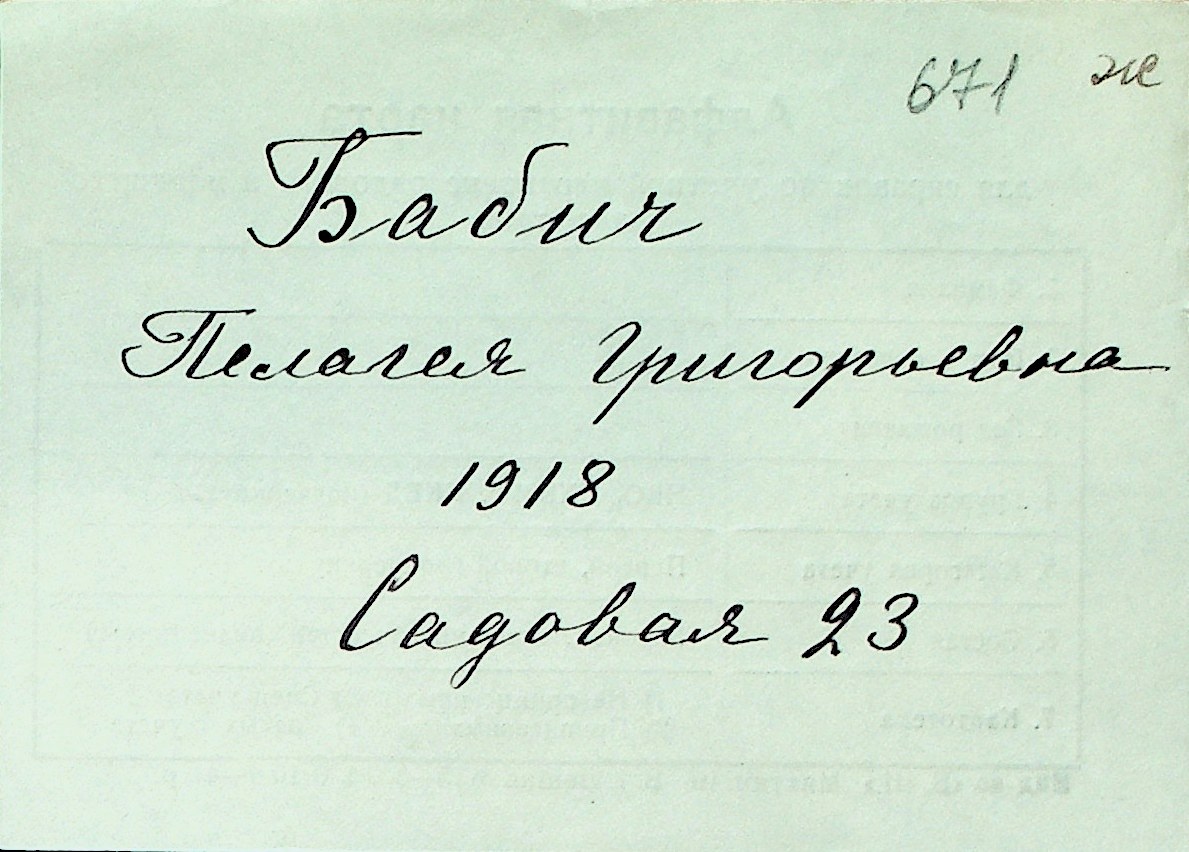 671 же
Бабич
Пелагея Григорьевна
1918
Садовая 23